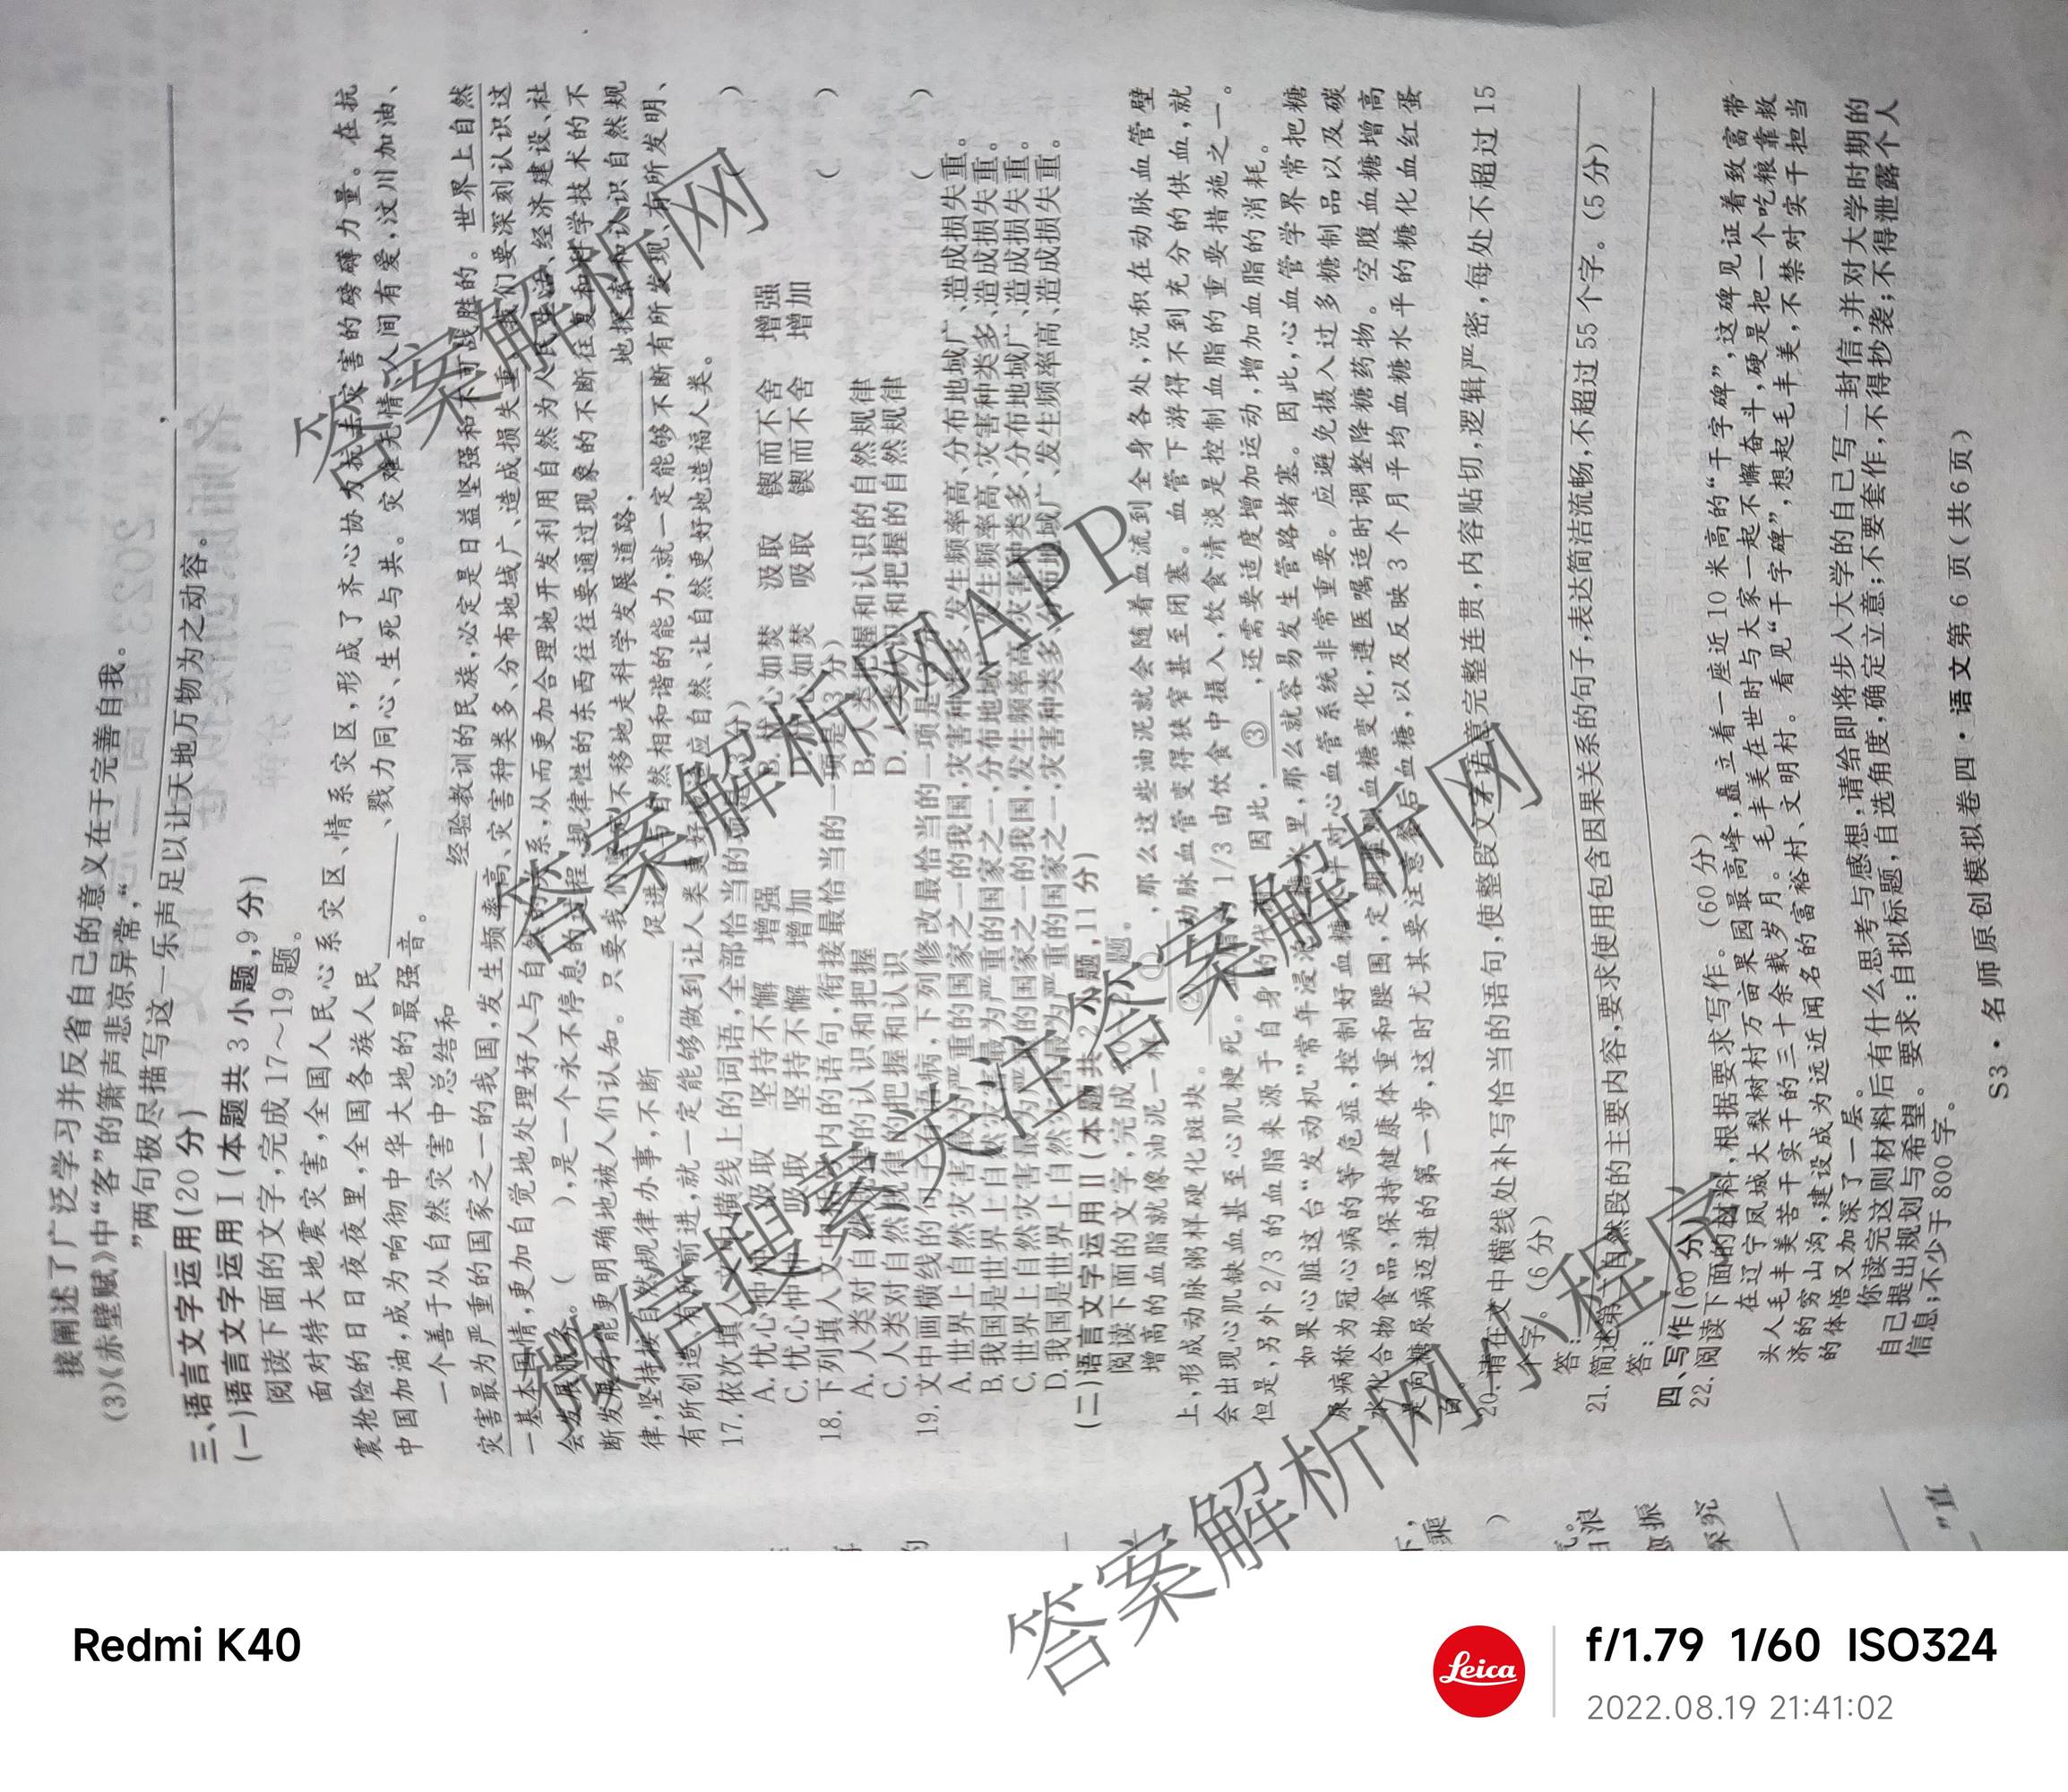 接阐述了广泛学习并反省自己的意义在于完善自我。
(3)《赤壁赋》中“客”的箫声悲凉异常,“
”两句极尽描写这一乐声足以让天地万物为之动容。
三、语言文字运用(20分)
(一)语言文字运用Ⅰ(本题共3小题,9分)
阅读下面的文字,完成17~19题。
面对特大地震灾害,全国人民心系灾区、情系灾区,形成了齐心协力抗击灾害的磅礴力量。在抗
震抢险的日日夜夜里,全国各族人民 、戮力同心、生死与共。灾难无情人间有爱,汶川加油、
中国加油,成为响彻中华大地的最强音。
一个善于从自然灾害中总结和 经验教训的民族,必定是日益坚强和不可战胜的。世界上自然
灾害最为严重的国家之一的我国,发生频率高、灾害种类多、分布地域广、造成损失重。我们要深刻认识这
一基本国情,更加自觉地处理好人与自然的关系,从而更加合理地开发利用自然为人民生活、经济建设、社
会发展服务。( ),是一个永不停息的过程,规律性的东西往往要通过现象的不断往复和科学技术的不
断发展才能更明确地被人们认知。只要我们 不移地走科学发展道路, 地探索和认识自然规
律,坚持按自然规律办事,不断 促进人与自然相和谐的能力,就一定能够不断有所发现、有所发明、
有所创造、有所前进,就一定能够做到让人类更好地适应自然、让自然更好地造福人类。
17.依次填入文中横线上的词语,全部恰当的一项是(3分) ( )
A.忧心忡忡 汲取 坚持不懈 增强 B.忧心如焚 汲取 锲而不舍 增强
C.忧心忡忡 吸取 坚持不懈 增加 D.忧心如焚 吸取 锲而不舍 增加
18.下列填入文中括号内的语句,衔接最恰当的一项是(3分) ( )
A.人类对自然规律的认识和把握 B.人类把握和认识的自然规律
C.人类对自然规律的把握和认识 D.人类认识和把握的自然规律
19.文中画横线的句子有语病,下列修改最恰当的一项是(3分) ( )
A.世界上自然灾害最为严重的国家之一的我国,灾害种类多、发生频率高、分布地域广、造成损失重。
B.我国是世界上自然灾害最为严重的国家之一,分布地域广、发生频率高、灾害种类多、造成损失重。
C.世界上自然灾害最为严重的国家之一的我国,发生频率高、灾害种类多、分布地域广、造成损失重。
D.我国是世界上自然灾害最为严重的国家之一,灾害种类多、分布地域广、发生频率高、造成损失重。
(二)语言文字运用Ⅱ(本题共2小题,11分)
阅读下面的文字,完成20~21题。
增高的血脂就像油泥一样, ① ,那么这些油泥就会随着血流到全身各处,沉积在动脉血管壁
上,形成动脉粥样硬化斑块。 ② ,动脉血管变得狭窄甚至闭塞。血管下游得不到充分的供血,就
会出现心肌缺血甚至心肌梗死。 1/3由饮食中摄入,饮食清淡是控制血脂的重要措施之一。
但是,另外2/3的血脂来源于自身的代谢。因此, ③ ,还需要适度增加运动,增加血脂的消耗。
如果心脏这台“发动机”常年浸泡在糖水里,那么就容易发生管路堵塞。因此,心血管学界常把糖
尿病称为冠心病的等危症,控制好血糖水平对心血管系统非常重要。应避免摄入过多糖制品以及碳
水化合物食品,保持健康体重和腰围,定期监测血糖变化,遵医嘱适时调整降糖药物。空腹血糖增高
是向糖尿病迈进的第一步,这时尤其要注意餐后血糖,以及反映3个月平均血糖水平的糖化血红蛋
白。
20.请在文中横线处补写恰当的语句,使整段文字语意完整连贯,内容贴切,逻辑严密,每处不超过15
个字。(6分)
答:
21.简述第二自然段的主要内容,要求使用包含因果关系的句子,表达简洁流畅,不超过55个字。(5分)
答:
四、写作(60分)
22.阅读下面的材料,根据要求写作。(60分)
在辽宁凤城大梨树村万亩果园最高峰,矗立着一座近10米高的“干字碑”,这碑见证着致富带
头人毛丰美苦干实干的三十余载岁月。毛丰美在世时与大家一起不懈奋斗,硬是把一个吃粮靠救
济的穷山沟,建设成为远近闻名的富裕村、文明村。看见“干字碑”,想起毛丰美,不禁对实干担当
的体悟又加深了一层。
你读完这则材料后有什么思考与感想,请给即将步入大学的自己写一封信,并对大学时期的
自己提出规划与希望。要求:自拟标题,自选角度,确定立意;不要套作,不得抄袭;不得泄露个人
信息;不少于800字。
S3·名师原创模拟卷四·语文第6页(共6页)
答案解析网
答案解析网APP
微信搜索关注答案解析网
答案解析网小程序
Redmi K40
Leica
f/1.79 1/60 ISO324
2022.08.19 21:41:02